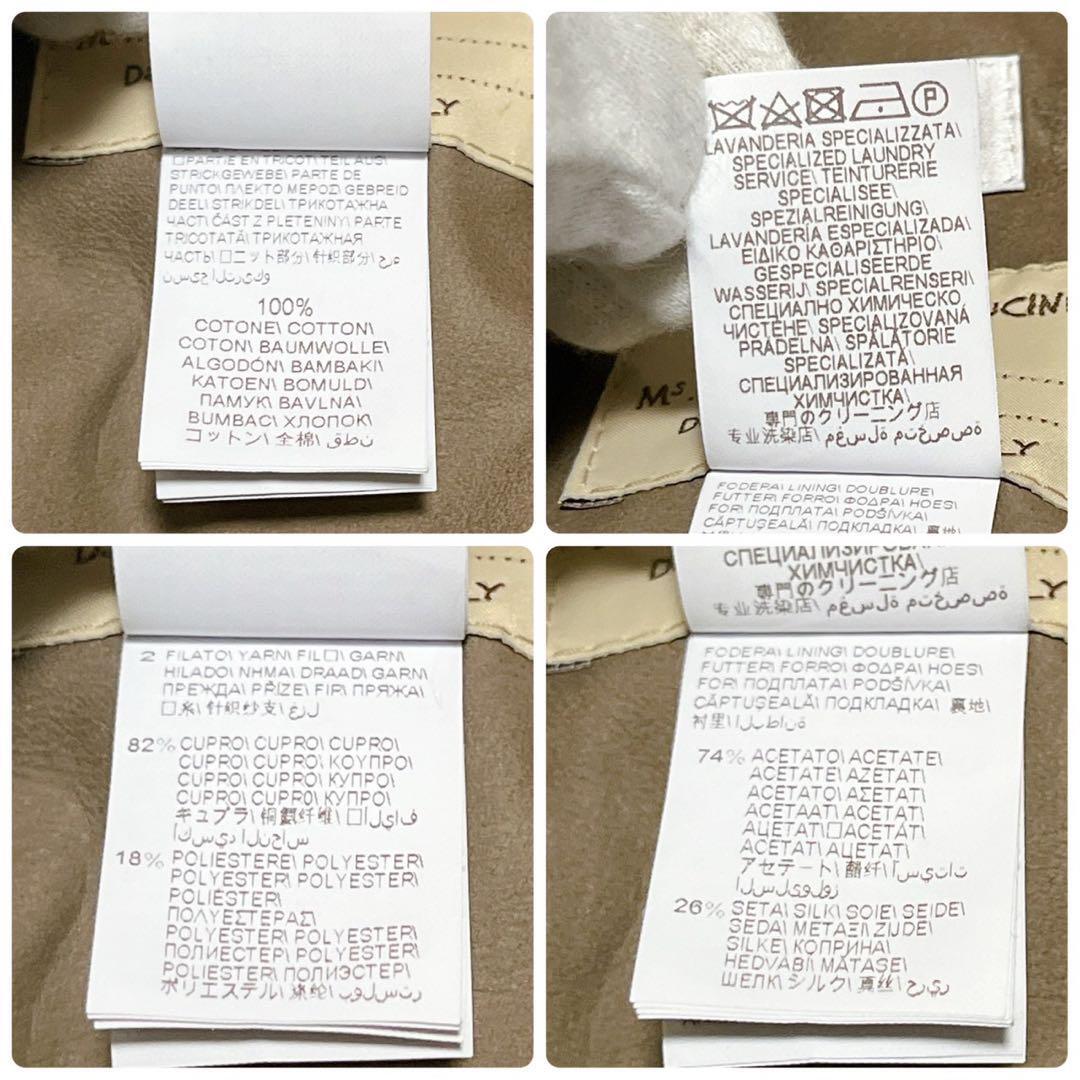 □PARTIE EN TRICOT\ TEIL AUS\
STRICKGEWEBE\ PARTE DE
PUNTO\ ΠΛΕΚΤΟ ΜΕΡΟΣ\ GEBREID
DEEL\ STRIKDEL\ ТРИКОТАЖНА
ЧАСТ\ ČÁST Z PLETENINY\ PARTE
TRICOTATĂ\ ТРИКОТАЖНАЯ
ЧАСТЬ\ □ニット部分\ 针织部分\
100%
COTONE\ COTTON\
COTON\ BAUMWOLLE\
ALGODÓN\ BAMBAKI\
KATOEN\ BOMULD\
ПАМУК\ BAVLNA\
BUMBAC\ ХЛОПОК\
コットン\ 全棉\ قطن
LY
P
LAVANDERIA SPECIALIZZATA\
SPECIALIZED LAUNDRY
SERVICE\ TEINTURERIE
SPECIALISEE\
SPEZIALREINIGUNG\
LAVANDERÍA ESPECIALIZADA\
ΕΙΔΙΚΟ ΚΑΘΑΡΙΣΤΗΡΙΟ\
GESPECIALISEERDE
WASSERIJ\ SPECIALRENSERI\
СПЕЦИАЛНО ХИМИЧЕСКО
ЧИСТЕНЕ\ SPECIALIZOVANÁ
PRÁDELNA\ SPĂLĂTORIE
SPECIALIZATĂ\
СПЕЦИАЛИЗИРОВАННАЯ
ХИМЧИСТКА\
専門のクリーニング店
专业洗染店\ مغسلة متخصصة
FODERA\ LINING\ DOUBLURE\
FUTTER\ FORRO\ ΦΟΔΡΑ\ HOES\
FOR\ ПОДПЛАТА\ PODŠÍVKA\
CĂPTUȘEALĂ\ ПОДКЛАДКА\ 裏地\
Ms.
LY
2 FILATO\ YARN\ FIL□\ GARN\
HILADO\ NHMA\ DRAAD\ GARN\
ПРЕЖДА\ PŘÍZE\ FIR\ ПРЯЖА\
□糸\ 针织纱支\ غزل
82% CUPRO\ CUPRO\ CUPRO\
CUPRO\ CUPRO\ ΚΟΥΠΡΟ\
CUPRO\ CUPRO\ КУПРО\
CUPRO\ CUPRO\ КУПРО\
キュプラ\ 铜氨纤维\ □ألياف
أكسيد النحاس
18% POLIESTERE\ POLYESTER\
POLYESTER\ POLYESTER\
POLIESTER\
ΠΟΛΥΕΣΤΕΡΑΣ\
POLYESTER\ POLYESTER\
ПОЛИЕСТЕР\ POLYESTER\
POLIESTER\ ПОЛИЭСТЕР\
ポリエステル\ 涤纶\ بولستر
LY
СПЕЦИАЛИЗИРОВАН
ХИМЧИСТКА\
専門のクリーニング店
专业洗染店\ مغسلة متخصصة
FODERA\ LINING\ DOUBLURE\
FUTTER\ FORRO\ ΦΟΔΡΑ\ HOES\
FOR\ ПОДПЛАТА\ PODŠÍVKA\
CĂPTUȘEALĂ\ ПОДКЛАДКА\ 裏地\
衬里\ البطانة
74% ACETATO\ ACETATE\
ACETATE\ AZETAT\
ACETATO\ ΑΣΕΤΑΤ\
ACETAAT\ ACETAT\
АЦЕТАТ\□ACETÁT\
ACETAT\ АЦЕТАТ\
アセテート\ 醋纤\ اسيتات
السليولوز
26% SETA\ SILK\ SOIE\ SEIDE\
SEDA\ ΜΕΤΑΞΙ\ ZIJDE\
SILKE\ КОПРИНА\
HEDVÁBÍ\ MĂTASE\
ШЕЛК\ シルク\ 真丝\ حرير
LY